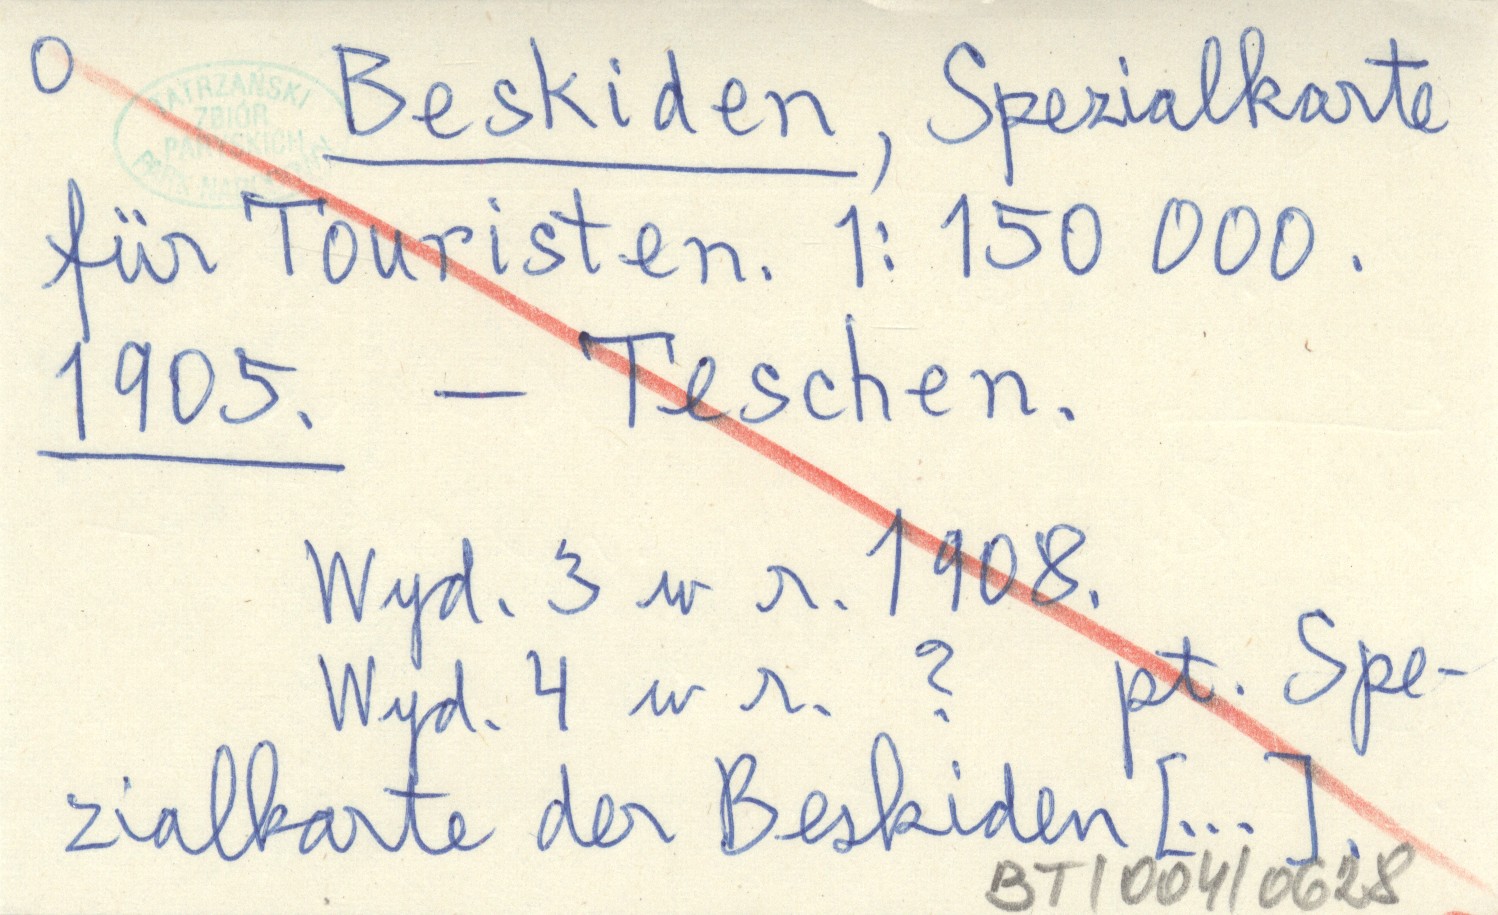 O
TATRZAŃSKI
ZBIÓR
PARYSKICH
PARK NARODOWY
Beskiden, Spezialkarte
für Touristen. 1:150 000.
1905. — Teschen.
Wyd. 3 w r. 1908.
Wyd. 4 w r. ? pt. Spe-
zialkarte der Beskiden [...].
BT/004/0628